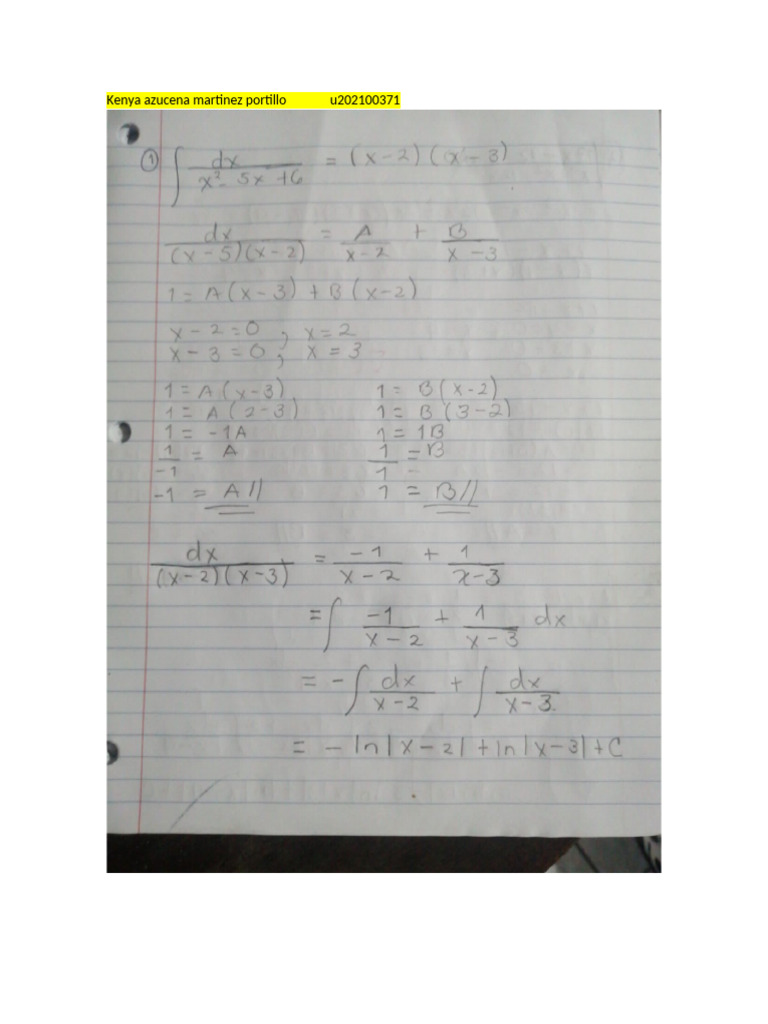 Kenya azucena martinez portillo u202100371
① ∫ dx / (x² - 5x + 6) = (x-2) (x - 3)
dx / ((x-5)(x-2)) = A / (x-2) + B / (x-3)
1 = A(x-3) + B(x-2)
x-2=0 , x=2
x-3=0 ; x=3
1 = A(x-3) 1 = B(x-2)
1 = A(2-3) 1 = B(3-2)
1 = -1A 1 = 1B
1/-1 = A 1/1 = B
-1 = A// 1 = B//
dx / ((x-2)(x-3)) = -1 / (x-2) + 1 / (x-3)
= ∫ -1 / (x-2) + 1 / (x-3) dx
= - ∫ dx / (x-2) + ∫ dx / (x-3)
= - ln|x-2| + ln|x-3| + C